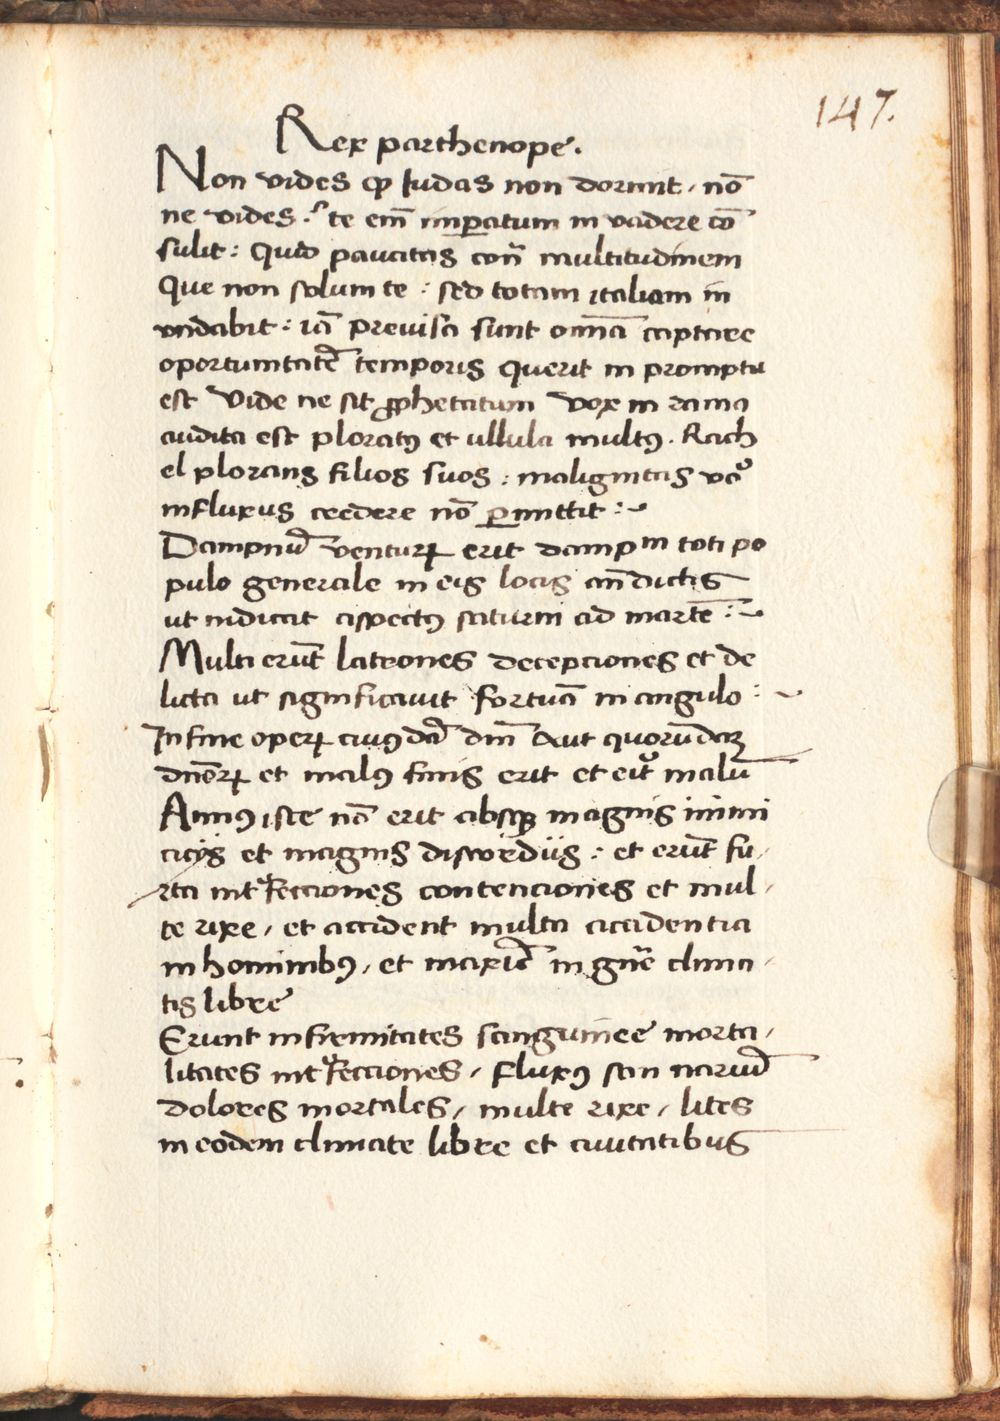 147.
Rex parthenope.
Non vides ꝙ Iudas non dormit, nō
ne vides. te em̄ imꝑatum in vadere cō
sulit: Quid paucitas cont̄ multitudinem
Que non solum te: sed totam italiam in
undabit: iā previsa sunt omnā captare
oportunitatē temporis querit in promptu
est Vide ne sit ꝓphetatum Vox in rama
audita est ploratꝰ et ullula multꝰ. Rach
el plorans filios suos: malignitas
influxus credere nō ꝑmittit:~
Dampnū venturꝝ erit dampm toti po
pulo generale in eis locis an̄dictis
ut indicat aspectꝰ saturni ad martē:~
Multi erūt latrones decepciones et de
licta ut significavit fortuā in angulo:~
In fine operꝝ cuiusdā dn̄i Aut quorūdaꝫ
dn̄orꝝ et malꝰ finis erit et eiꝰ malū
Annꝰ iste nō erit absqꝫ magnis inimi
cicijs et magnis discordiis: et erūt fu,
rta int̄fecciones contenciones et mul,
te rixe, et accident multa accidentia
in hominibꝰ, et maxīe in gn̄e clima,
tis libre
Erunt infirmitates sanguinee morta,
litates int̄fecciones, fluxꝰ san nariū
dolores mortales, multe rixe, lites
in eodem climate libre et civitatibus